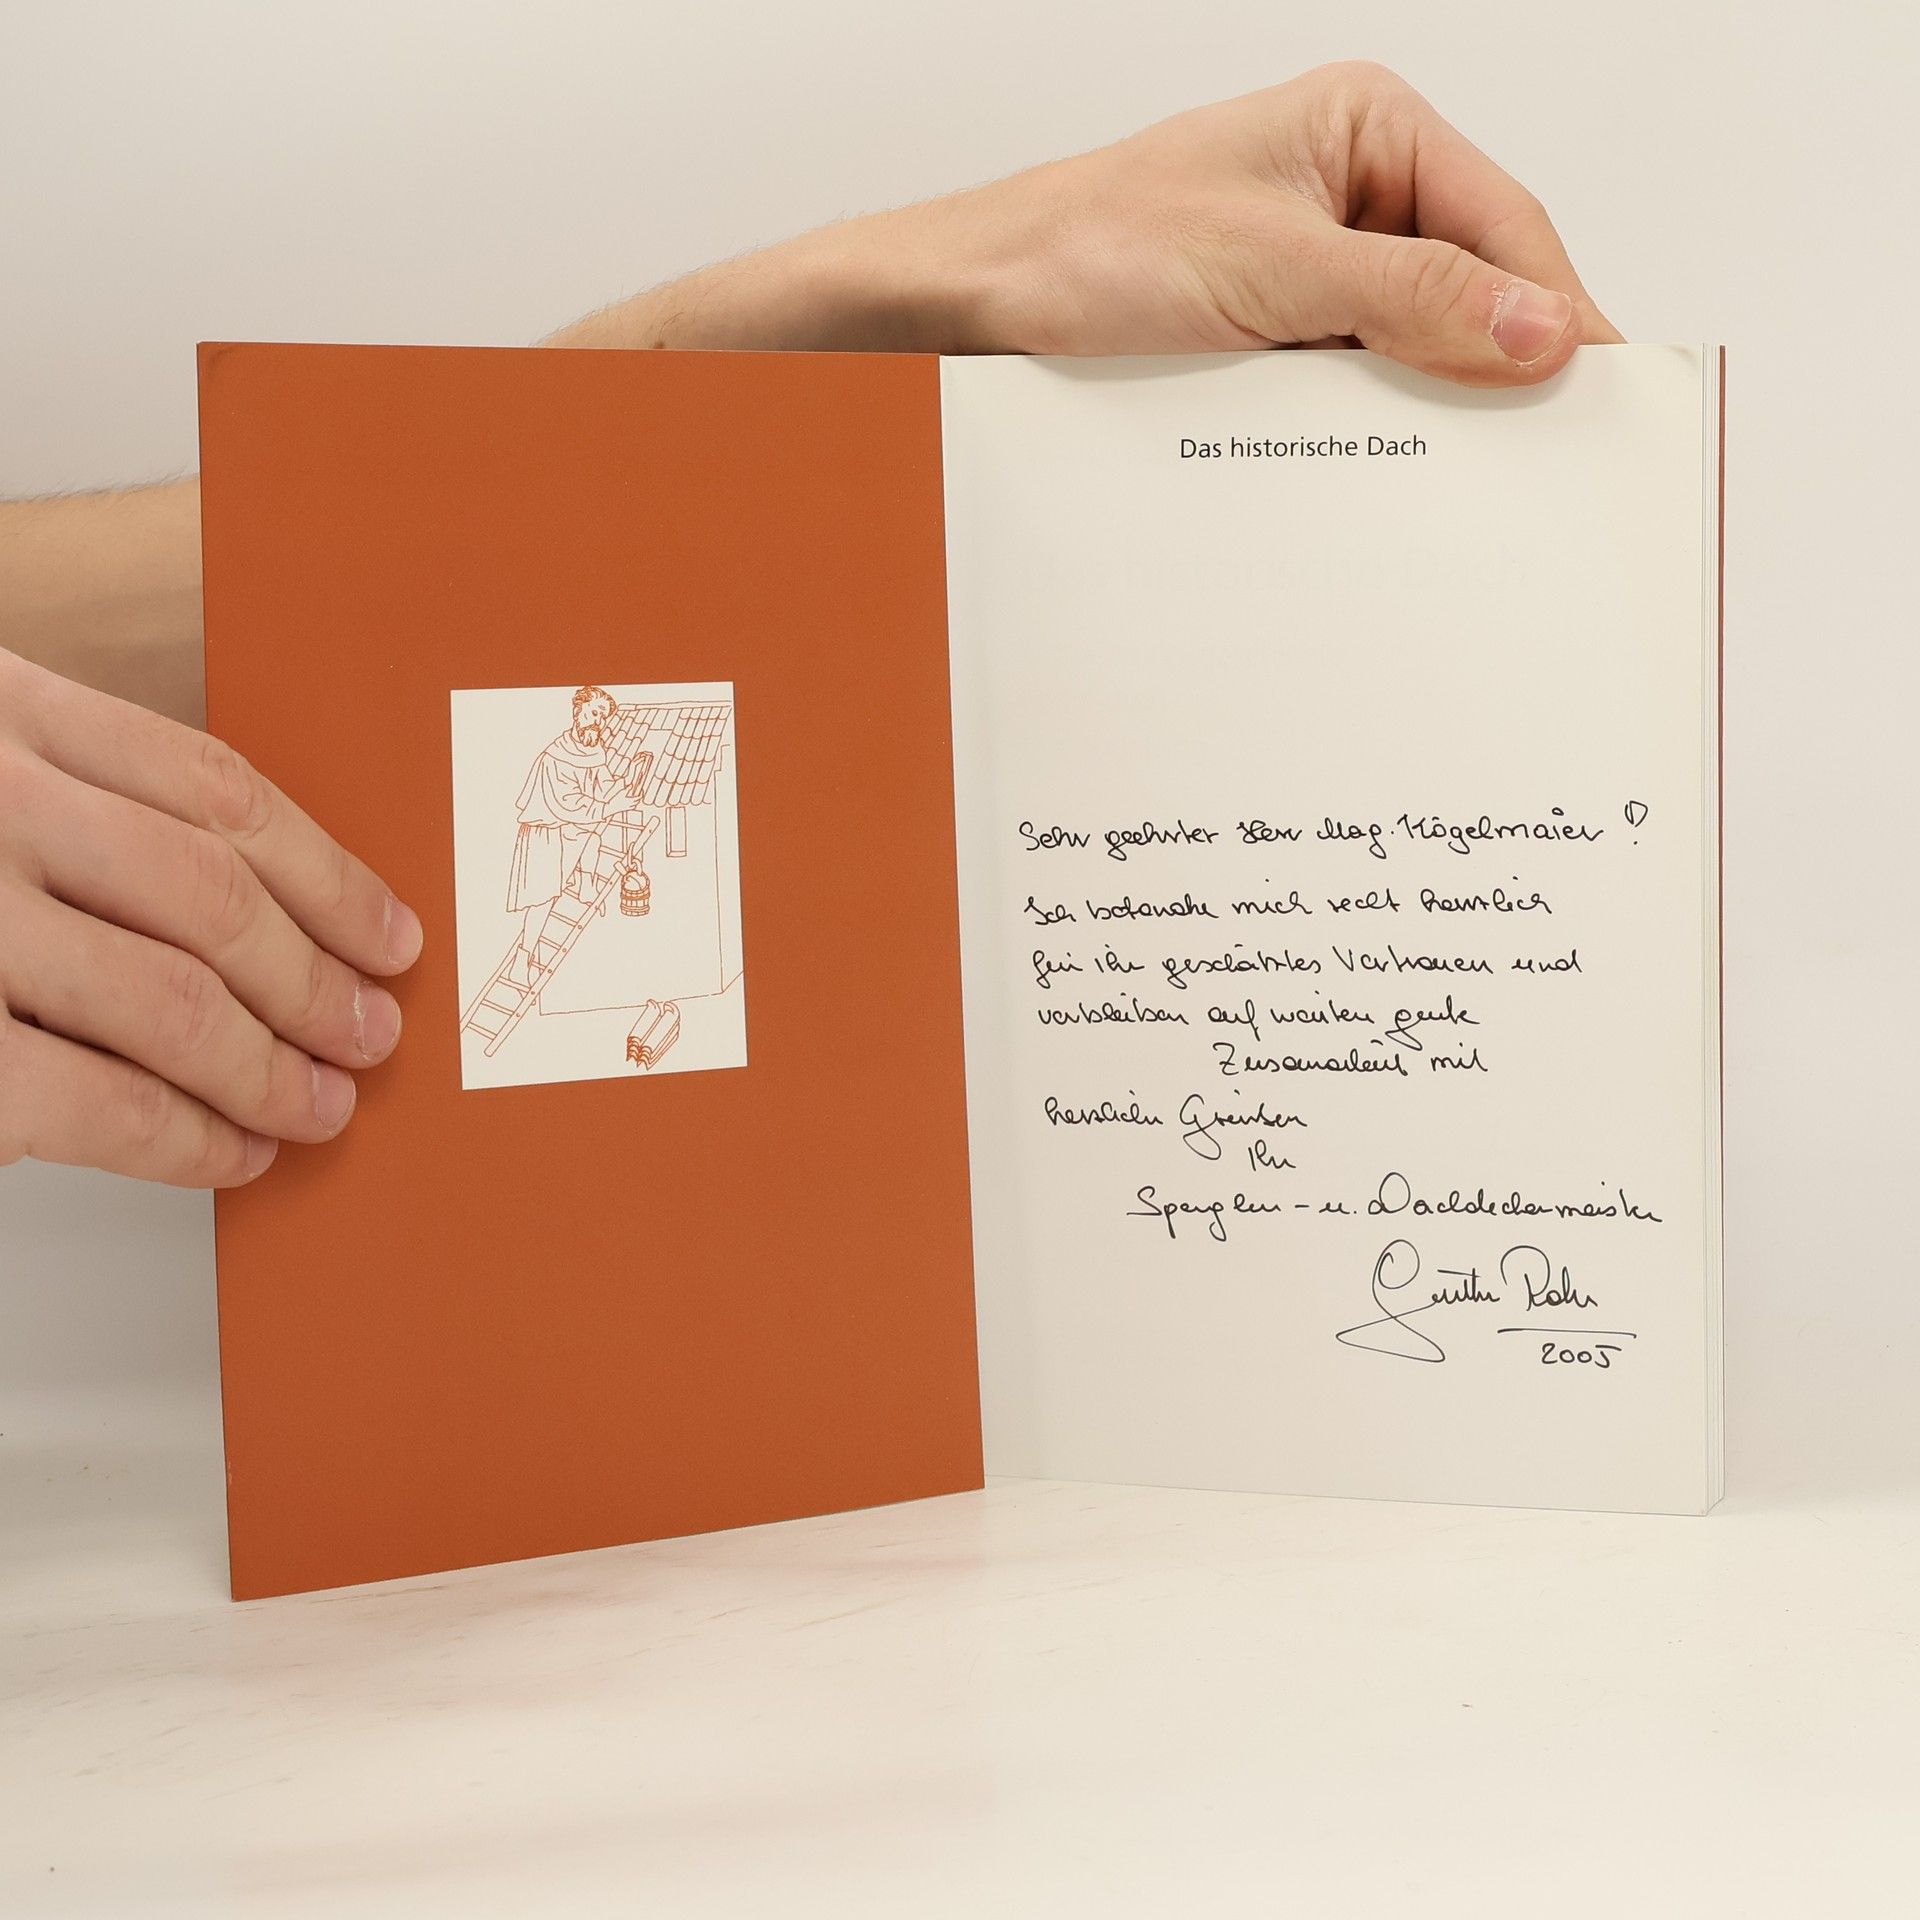 Das historische Dach
Sehr geehrter Herr Mag. Kögelmaier !
Ich bedanke mich recht herzlich
für ihr geschätztes Vertrauen und
verbleiben auf weitere gute
Zusamarbeit mit
herzlichen Grüssen
Ihr
Spengler - u. Dachdeckermeister
2005